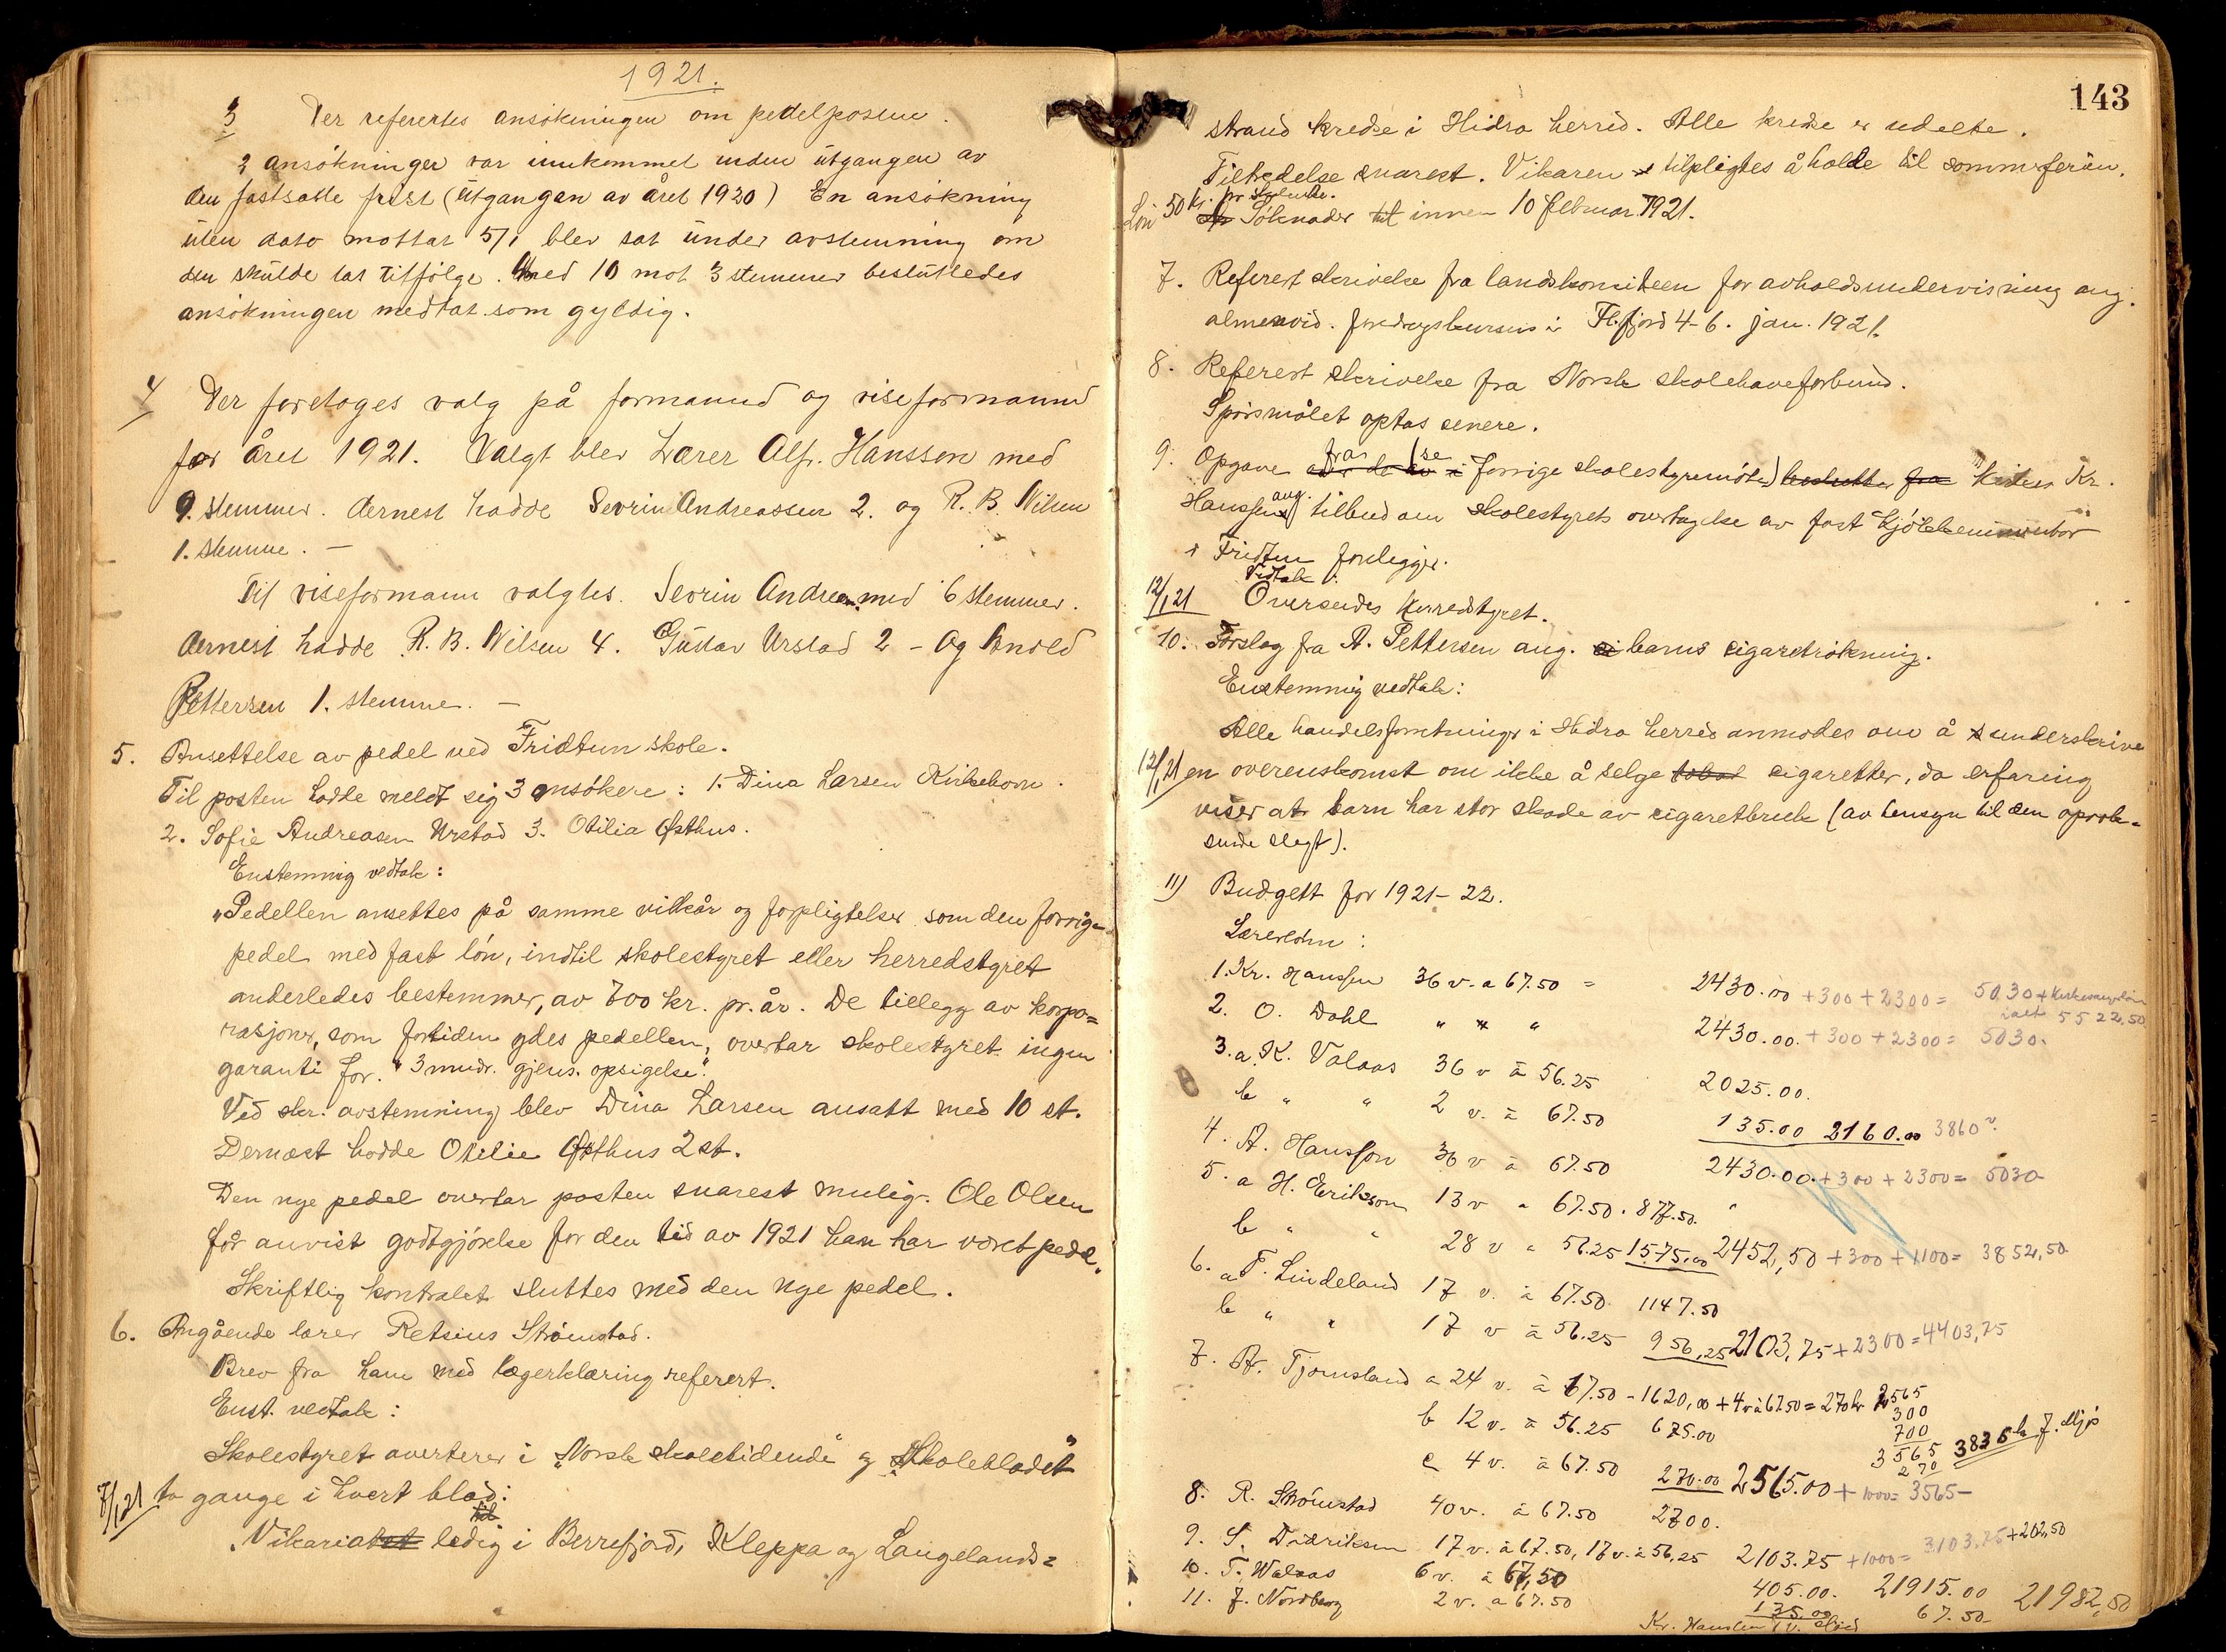 1921.
3 Der refertes ansökningen om pedelposten.
3 ansökninger var innkommet inden utgangen av
den fastsatte frist (Utgangen av året 1920) En ansökning
uten dato mottat 5/1 blev sat under avstemning om
den skulde tas tilfölge. Med 10 mot 3 stemmer besluttedes
ansökningen medtat som gyldig.
4 Der foretoges valg på formannd og viseformannd
for året 1921. Valgt blev Lærer Alf. Hansson med
9. stemmer. dernest hadde Sevrin Andreassen 2. og R. B. Nilsen
1. stemme. —
Til viseformann valgtes. Sevrin Andreas. med 6 stemmer.
dernest hadde R. B. Nilsen 4. Gustav Urstad 2 - Og Arnold
Pettersen 1. stemme. —
5. Ansettelse av pedel ved Fridtun skole.
Til posten hadde meldt sig 3 ansökere: 1. Dina Larsen Kirkehavn.
2. Sofie Andreasen Urstad 3. Otilia Østhus.
Enstemmig vedtak:
„Pedellen ansettes på samme vilkår og forpligtelser som den forrige
pedel med fast lön, indtil skolestyret eller herredstyret
anderledes bestemmer, av 700 kr. pr. år. De tillegg av korpo=
rasjoner, som fortiden ydes pedellen, overtar skolestyret ingen
garanti for. " 3 mndr. gjens. opsigelse".
Ved skr. avstemning blev Dina Larsen ansatt med 10 st.
Dernæst hadde Otilie Østhus 2 st.
Den nye pedel overtar posten snarest mulig. Ole Olsen
får anvist godtgjörelse for den tid av 1921 han har været pedel.
Skriftlig kontrakt sluttes med den nye pedel.
6. Angående lærer Retsius Strömstad.
Brev fra ham med lægerklæring referert.
Enst. vedtak:
Skolestyret averterer i „Norsk skoletidende" og „Skolebladet"
7/1 21 to gange i hvert blad:
„Vikariatet ledig i Berrefjord, Kleppa og Langelands=
143
strand kredse i Hidra herred. Alle kredse er udelte.
Tiltredelse snarest. Vikaren tilpligtes å holde til sommerferien.
Lön 50 kr. pr. skoleuke. Söknader innen 10 februar 1921.
7. Referert skrivelse fra landskomiteen for avholdsundervisning ang.
almenvid. foredragskursus i Fl.fjord 4-6. jan. 1921.
8. Referert skrivelse fra Norsk skolehaveforbund.
Spörsmålet optas senere.
9. Opgave fra (se forrige skolestyremöte) Kr.
Hanssen ang. tilbud om skolestyrets overtagelse av fast kjökkeninventar
i Fridtun foreligger.
Vedtak:
12/1 21 Oversendes herredstyret.
10. Forslag fra A. Pettersen ang. barns cigaretrökning.
Enstemmig vedtak:
Alle handelsforretninger i Hidra herred anmodes om å underskrive
12/1 21 en overenskomst om ikke å selge tobak cigaretter, da erfaring
viser at barn har stor skade av cigaretbruk (av hensyn til den opvok=
sende slegt).
11) Budgett for 1921-22.
Lærerlönn:
1. Kr. Hanssen 36 v. a 67.50 = 2430.00 +300+2300= 5030+
ialt 5522,50
2. O. Dahl " " " 2430.00. +300+2300= 5030.
3. a. K. Valaas 36 v à 56.25 2025.00.
b " " 2 v. à 67.50 135.00 2160.00 3860
4. A. Hansson 36 v à 67.50 2430.00. +300+2300= 5030
5. a H. Erikson 13 v " 67.50. 877.50.
b " " 28 v " 56.25 1575.00 2452,50 +300+1100= 3852,50
6. a T. Lindeland 17 v. à 67.50 1147.50
b " " 17 v à 56.25 956,25 2103,75+2300=4403,75
7. A. Tjomsland a 24 v. à 67.50 - 1620,00 + 4 v à 67.50 = 270 kr 2565
300
b 12 v. à 56.25 675.00 700
3565 3835 kr
270
c 4 v. à 67.50 270.00 2565.00 + 1000= 3565-
8. R. Strömstad 40 v. à 67.50 2700.
9. S. Didriksen 17 v. à 67.50, 17 v. à 56,25 2103.75 +1000= 3103,75+202,50
10. T. Walaas 6 v. à 67,50 405.00. 21915.00 21982,50
11. J. Nordberg 2 v. a 67.50 135.00 67.50
Kr. Hanssen 1 v. slöid